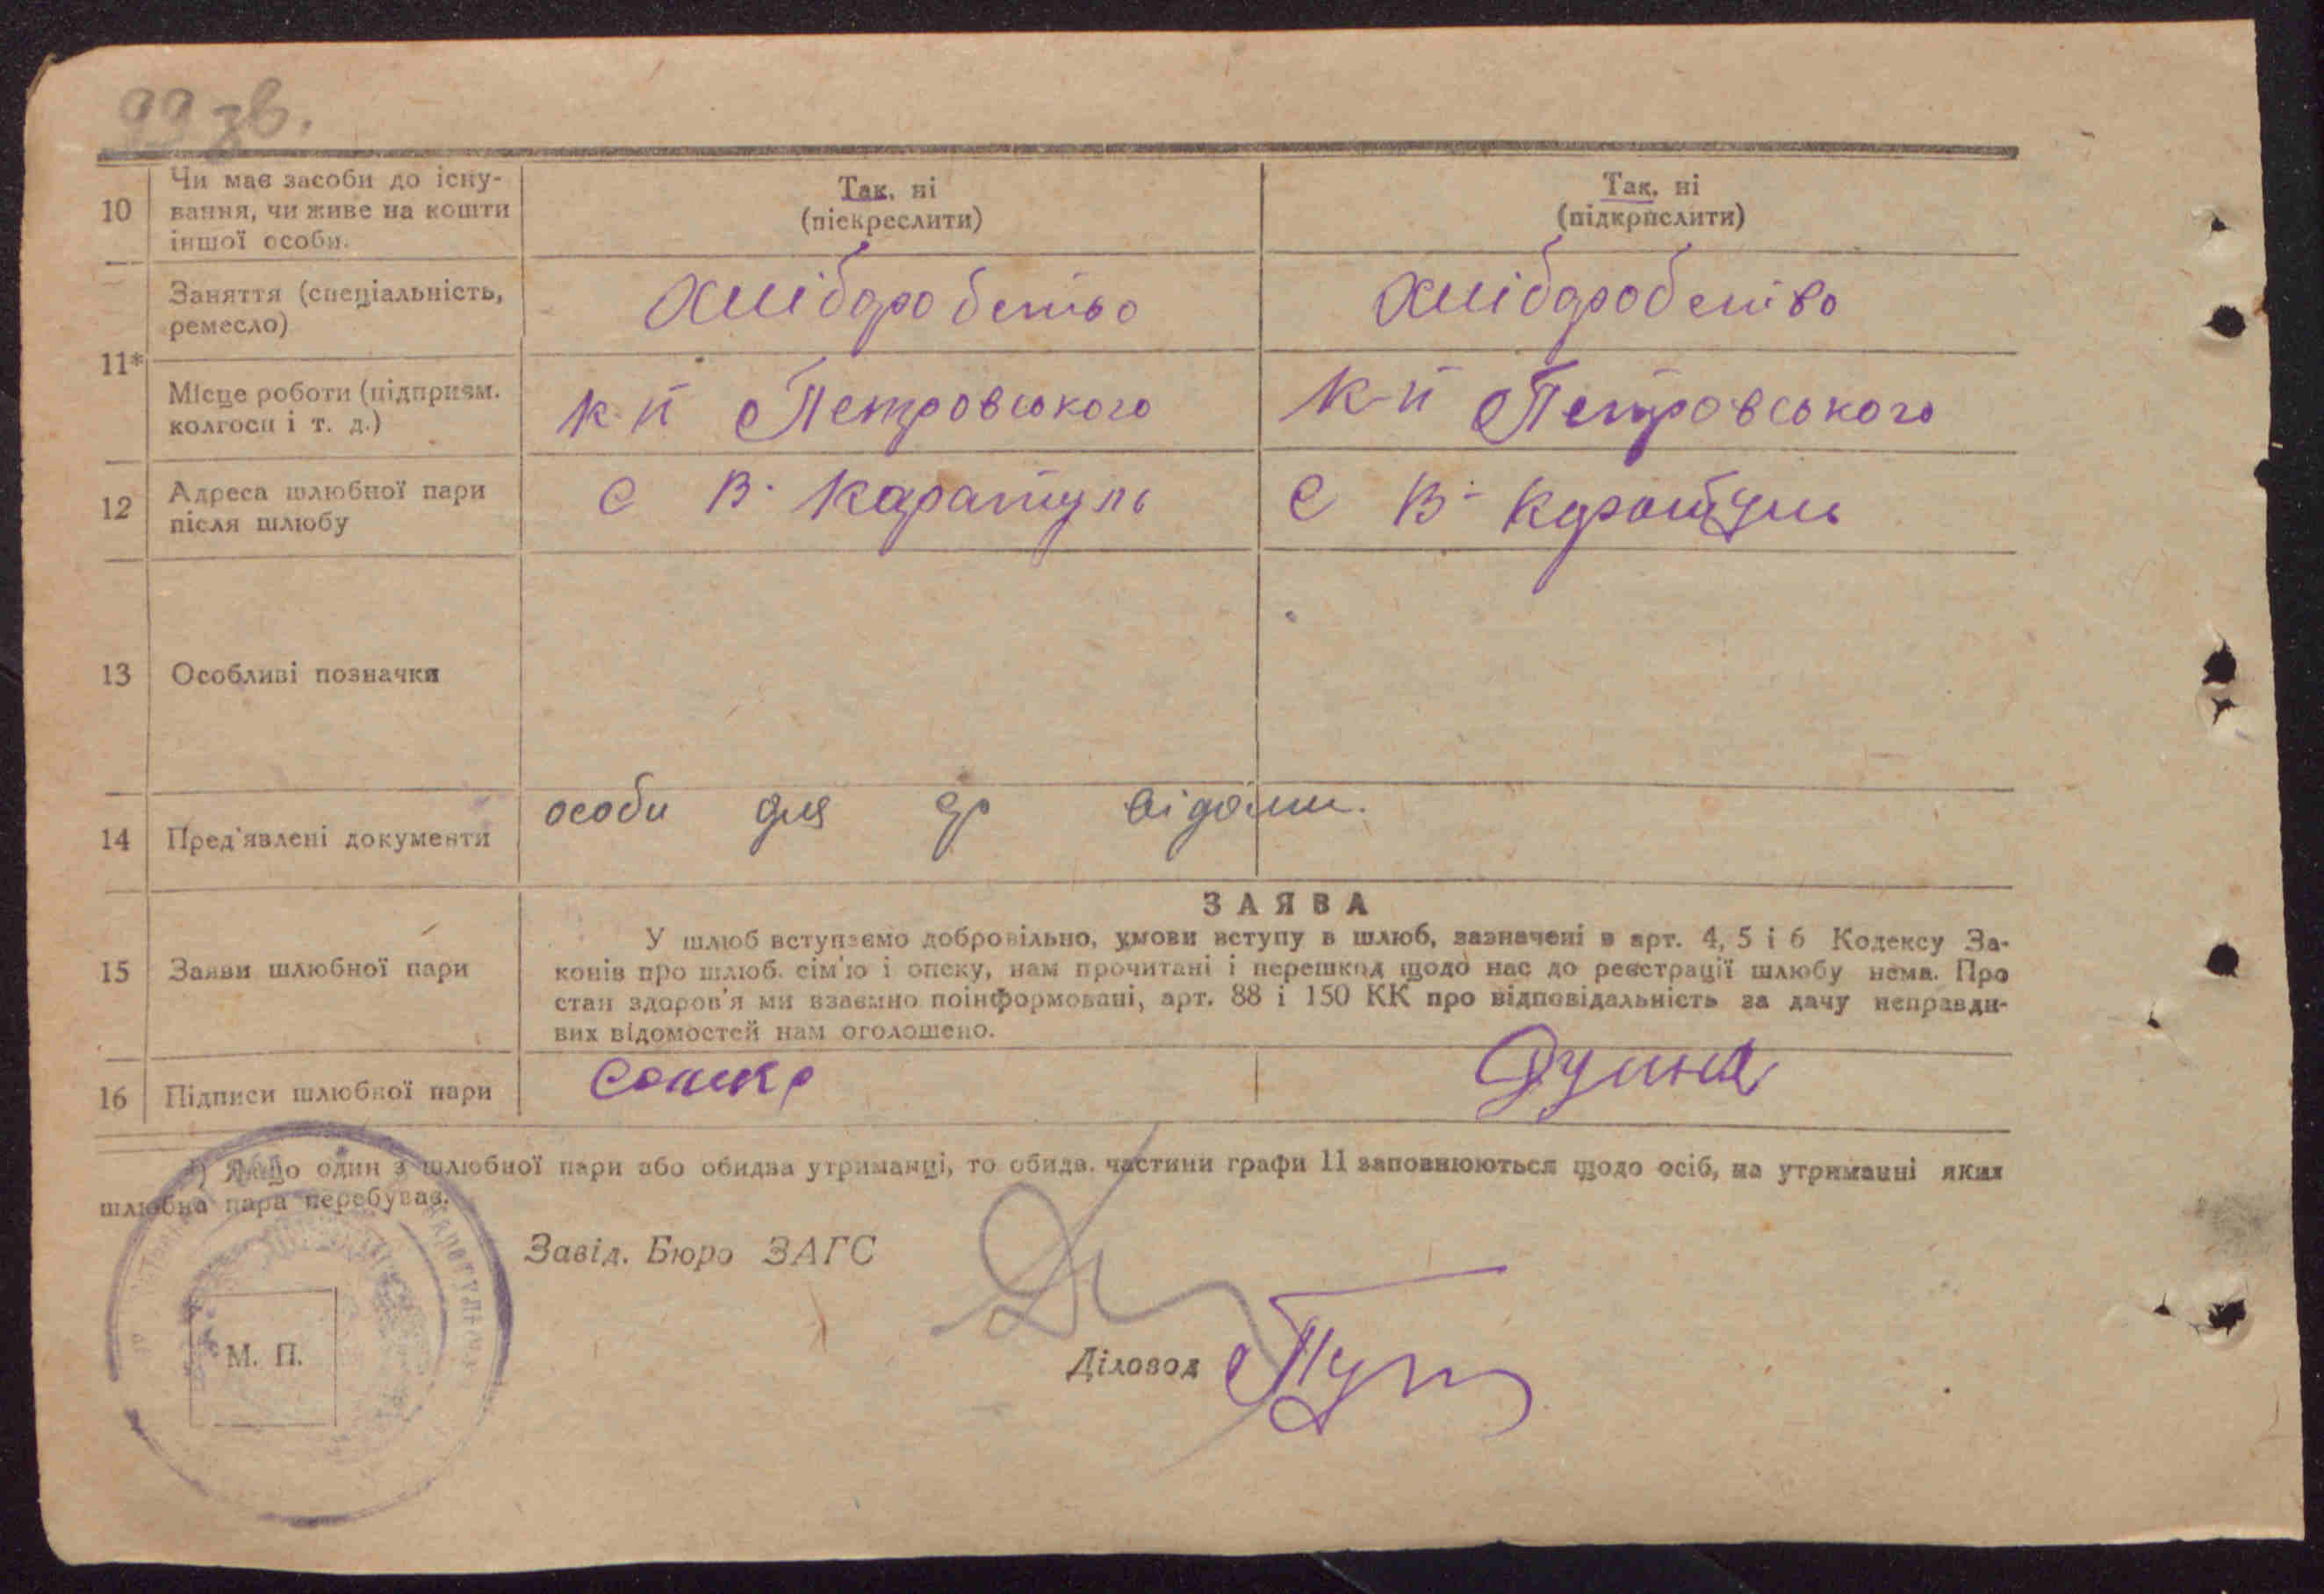 99 зв.
10 Чи має засоби до існу-
вання, чи живе на кошти
іншої особи.
Так, ні
(піскреслити)
Так, ні
(підкрпслити)
11*
Заняття (спеціальність,
ремесло)
Хлібаробство
Хлібаробство
Місце роботи (підприєм.
колгосп і т. д.)
к-п Петровського
К-п Петровського
12 Адреса шлюбної пари
після шлюбу
С В. Каратуль
С В. Каратуль
13 Особливі позначки
14 Пред'явлені документи
особи для відомі.
15 Заяви шлюбної пари
ЗАЯВА
У шлюб вступаємо добровільно, умови вступу в шлюб, зазначені в арт. 4, 5 і 6 Кодексу За-
конів про шлюб. сім'ю і опеку, нам прочитані і перешкод щодо нас до реєстрації шлюбу нема. Про
стан здоров'я ми взаємно поінформовані, арт. 88 і 150 КК про відповідальність за дачу неправди-
вих відомостей нам оголошено.
16 Підписи шлюбної пари
Якщо один з шлюбної пари або обидва утриманці, то обидв. частини графи 11 заповнюються щодо осіб, на утриманні яких
шлюбна пара перебуває.
Завід. Бюро ЗАГС
М. П.
Діловод